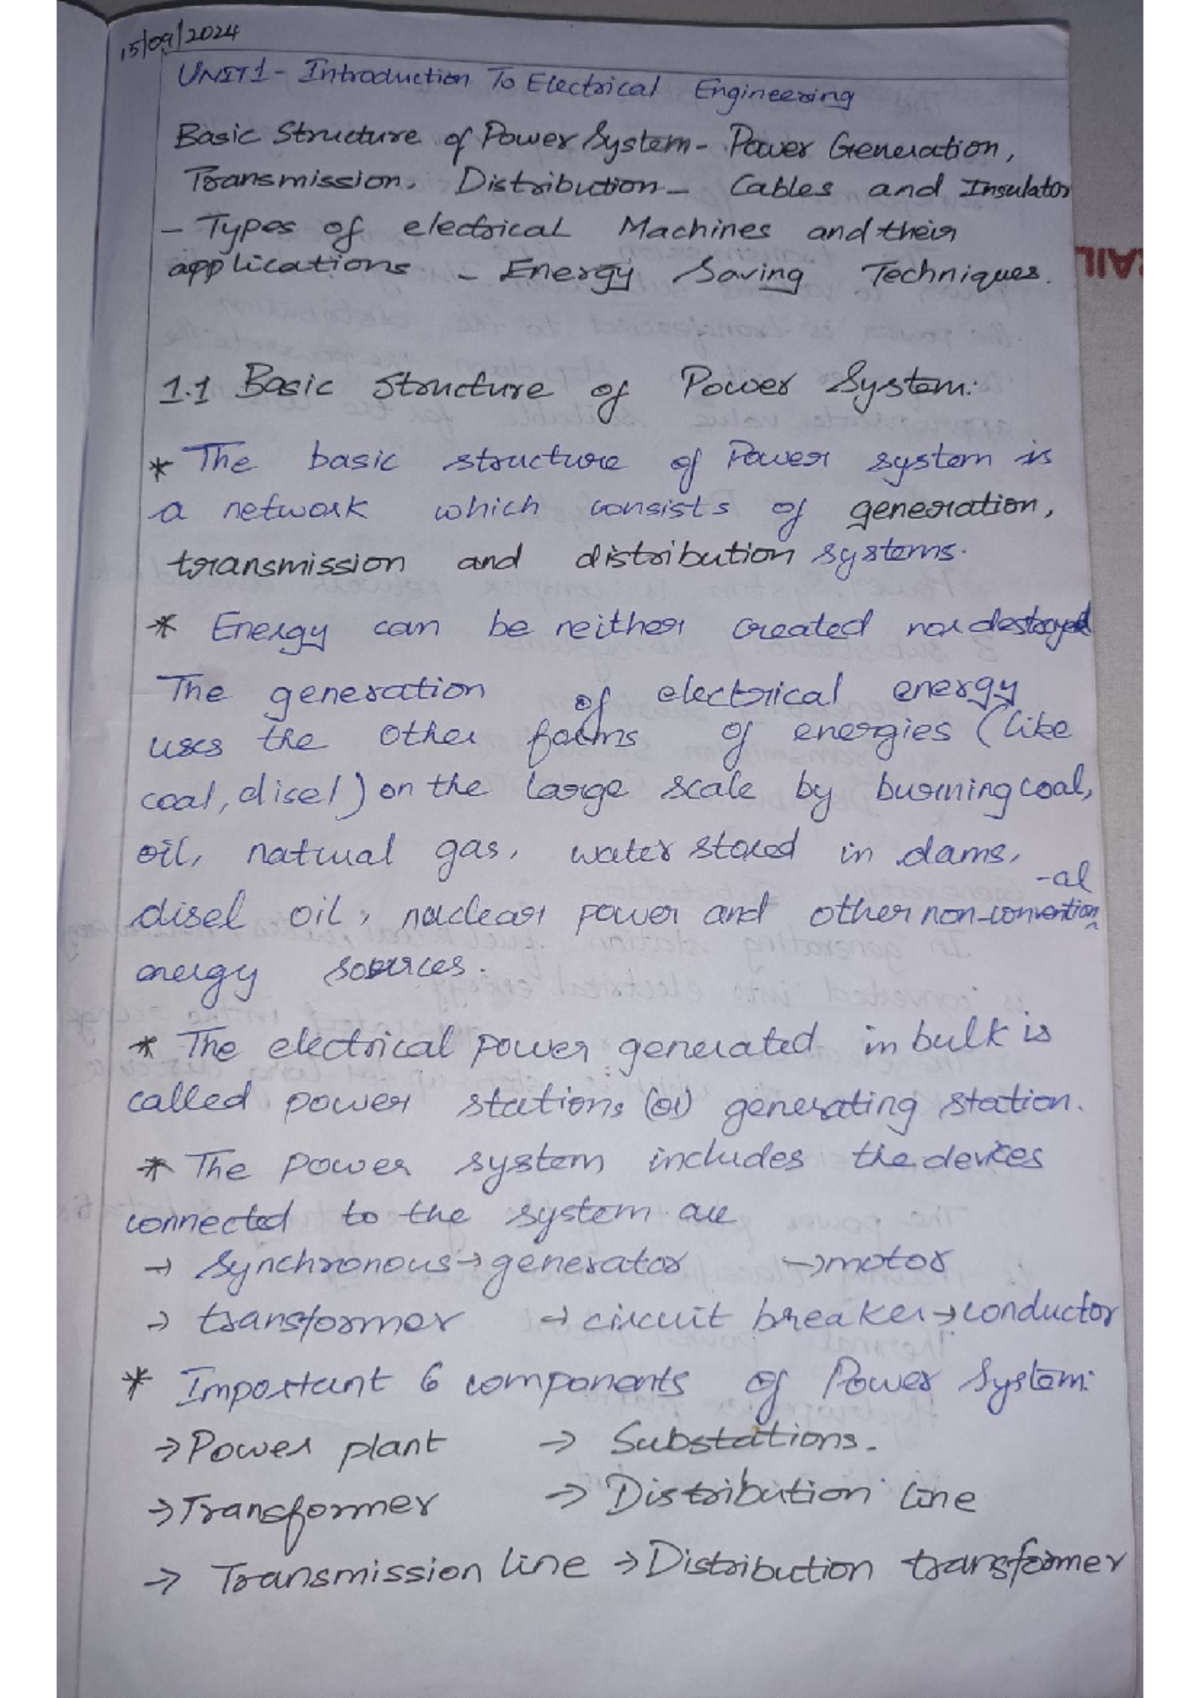 15/09/2024
UNIT1 - Introduction To Electrical Engineering
Basic Structure of Power System - Power Generation,
Transmission, Distribution - Cables and Insulator
- Types of electrical Machines and their
applications - Energy Saving Techniques.
1.1 Basic Structure of Power System:
* The basic structure of Power system is
a network which consists of generation,
transmission and distribution systems.
* Energy can be neither created nor destroyed
The generation of electrical energy
uses the other forms of energies (like
coal, disel) on the large scale by burning coal,
oil, natural gas, water stored in dams,
disel oil, nuclear power and other non-convention-al
energy sources.
* The electrical power generated in bulk is
called power stations (or) generating station.
* The power system includes the devices
connected to the system are
→ Synchronous → generator → motor
→ transformer → circuit breaker → conductor
* Important 6 components of Power System:
→ Power plant → Substations.
→ Transformer → Distribution line
→ Transmission line → Distribution transformer